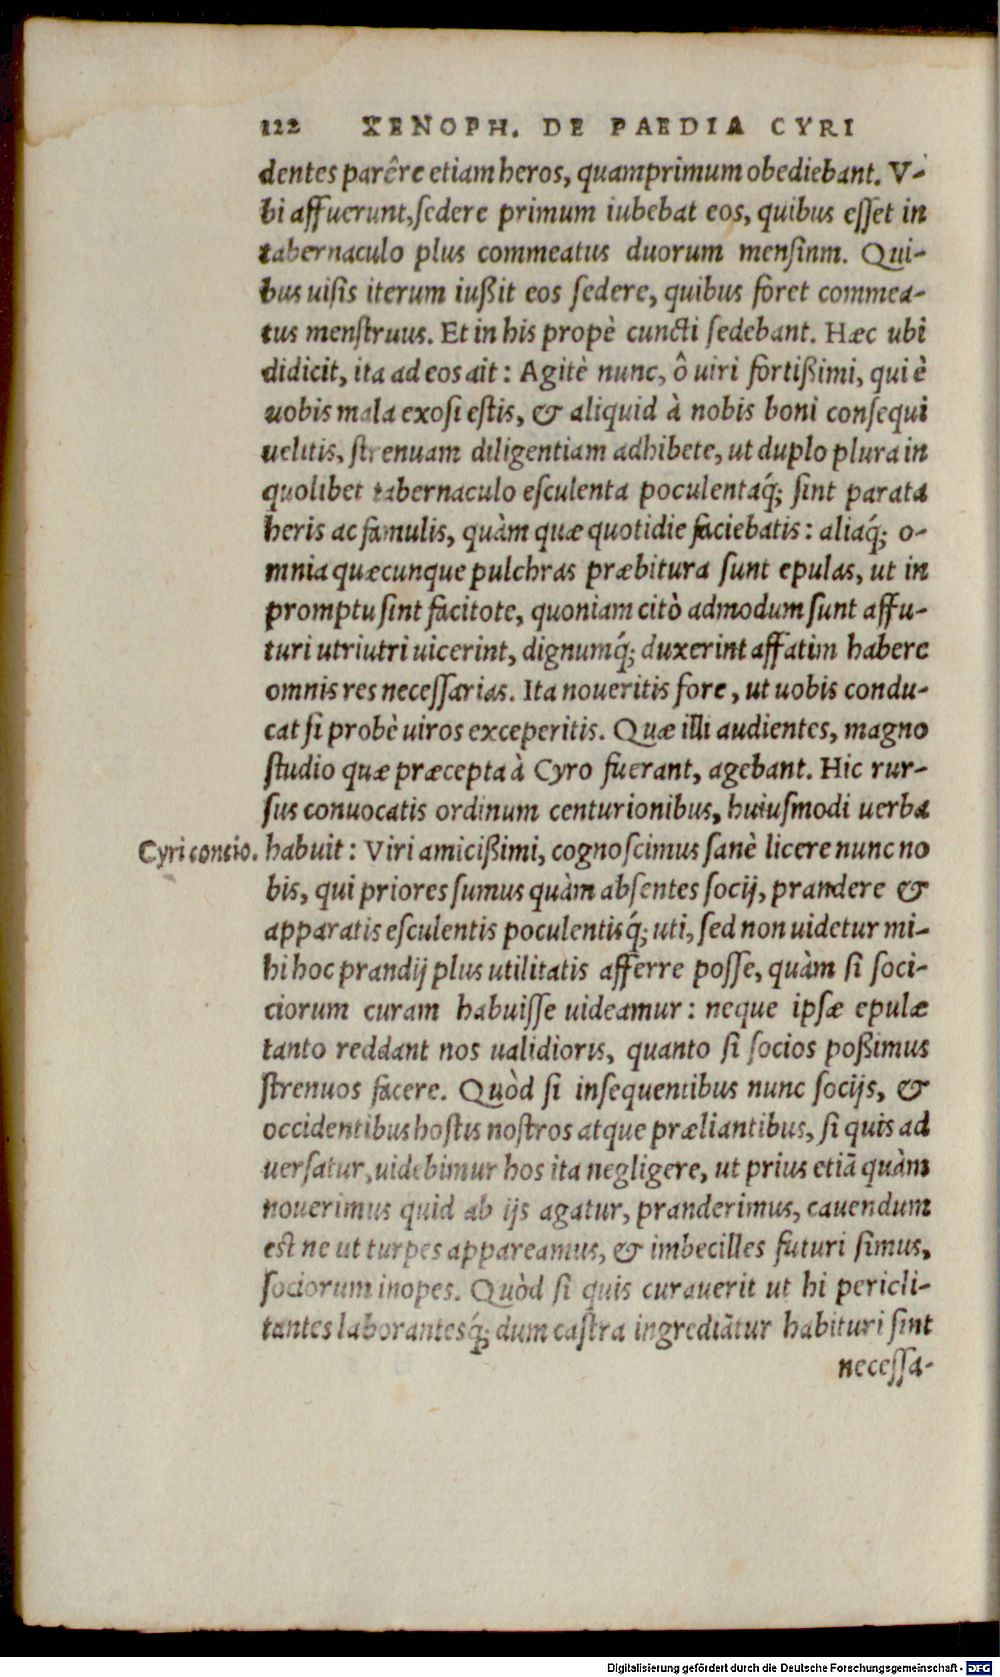 122 XENOPH. DE PAEDIA CYRI
dentes parêre etiam heros, quamprimum obediebant. V-
bi affuerunt, sedere primum iubebat eos, quibus esset in
tabernaculo plus commeatus duorum mensinm. Qui-
bus uisis iterum iußit eos sedere, quibus foret commea-
tus menstruus. Et in his propè cuncti sedebant. Hæc ubi
didicit, ita ad eos ait: Agitè nunc, ô uiri fortißimi, qui è
uobis mala exosi estis, & aliquid à nobis boni consequi
uelitis, strenuam diligentiam adhibete, ut duplo plura in
quolibet tabernaculo esculenta poculentaq́; sint parata
heris ac famulis, quàm quæ quotidie faciebatis: aliaq́; o-
mnia quæcunque pulchras præbitura sunt epulas, ut in
promptu sint facitote, quoniam citò admodum sunt affu-
turi utriutri uicerint, dignumq́; duxerint affatim habere
omnis res necessarias. Ita noueritis fore, ut uobis condu-
cat si probè uiros exceperitis. Quæ illi audientes, magno
studio quæ præcepta à Cyro fuerant, agebant. Hic rur-
sus conuocatis ordinum centurionibus, huiusmodi uerba
Cyri concio. habuit: Viri amicißimi, cognoscimus sanè licere nunc no
bis, qui priores sumus quàm absentes socij, prandere &
apparatis esculentis poculentisq́; uti, sed non uidetur mi-
hi hoc prandij plus utilitatis afferre posse, quàm si soci-
ciorum curam habuisse uideamur: neque ipsæ epulæ
tanto reddant nos ualidioris, quanto si socios poßimus
strenuos facere. Quòd si insequentibus nunc socijs, &
occidentibus hostis nostros atque præliantibus, si quis ad
uersatur, uidebimur hos ita negligere, ut prius etiã quàm
nouerimus quid ab ijs agatur, pranderimus, cauendum
est ne ut turpes appareamus, & imbecilles futuri simus,
sociorum inopes. Quòd si quis curauerit ut hi pericli-
tantes laborantesq́; dum castra ingrediãtur habituri sint
necessa-
Digitalisierung gefördert durch die Deutsche Forschungsgemeinschaft - DFG